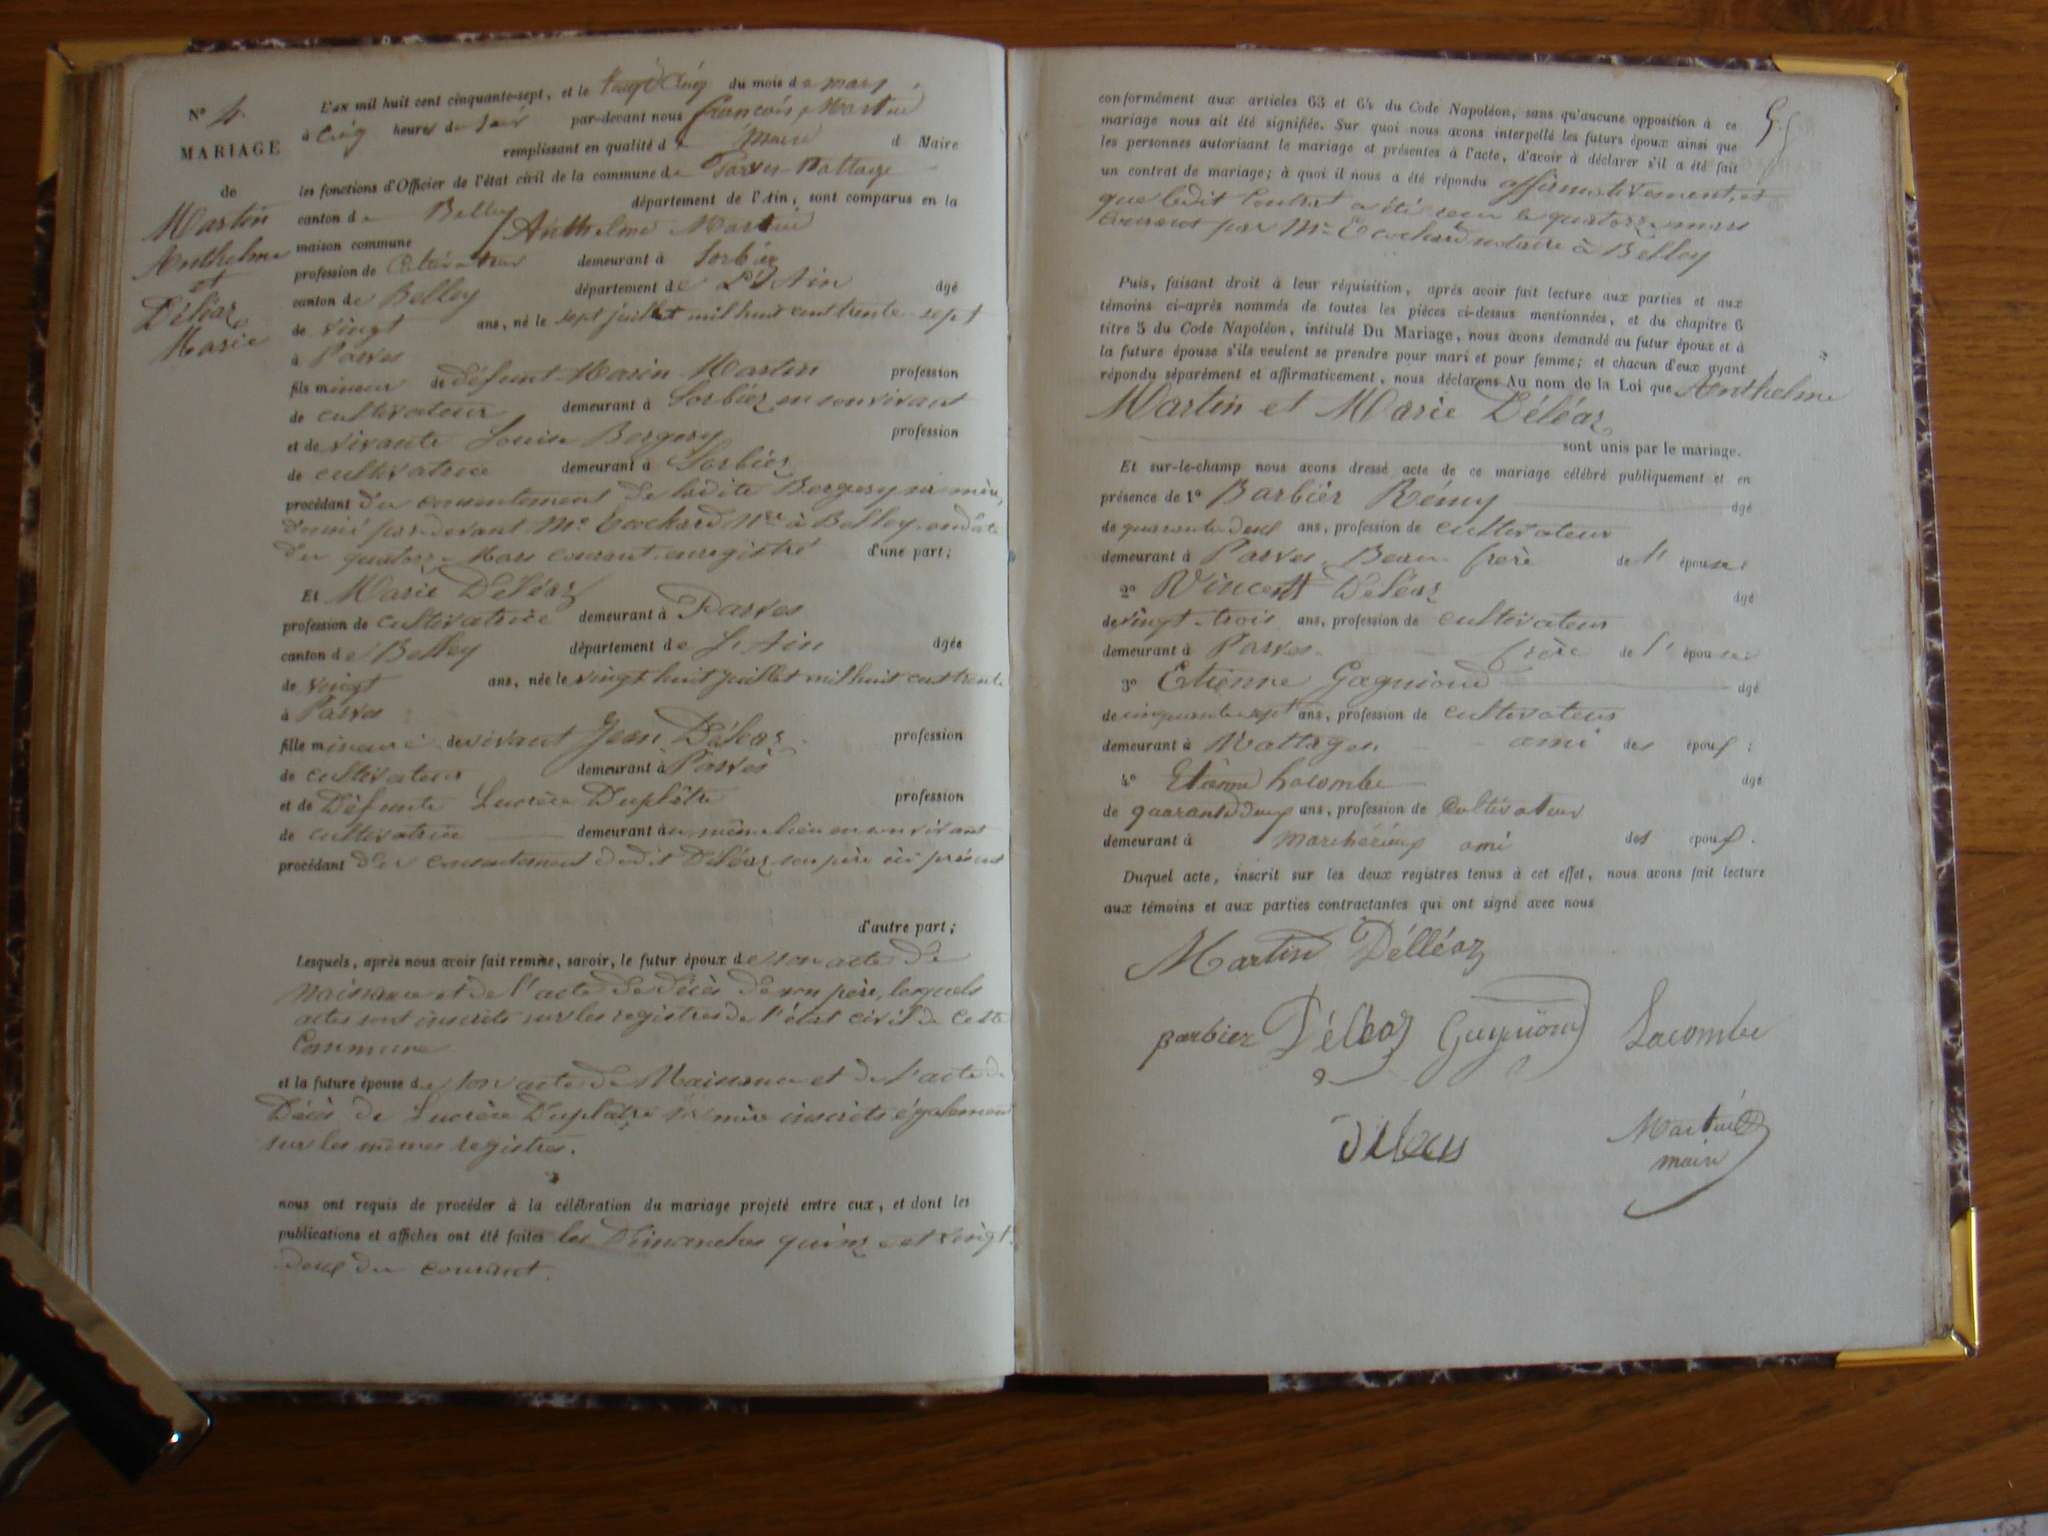 N° 4
MARIAGE
de
Martin
Anthelme
et
Déléaz
Marie
L'an mil huit cent cinquante-sept, et le vingt Cinq du mois de mars
à Cinq heures du soir par-devant nous françois Martin
remplissant en qualité de Maire d Maire
les fonctions d'Officier de l'état civil de la commune de Parves Nattage
canton de Belley département de l'Ain, sont comparus en la
maison commune Anthelme Martin
profession de Cultivateur demeurant à Sorbiéz
canton de Belley département de L'Ain âgé
de vingt ans, né le sept juillet mil huit cent trente sept
à Parves
fils mineur de défunt Marin Martin profession
de cultivateur demeurant à Sorbiéz en son vivant
et de vivante Louise Bergery profession
de cultivatrice demeurant à Sorbiéz
procédant du consentement de ladite Bergery sa mère,
donné par devant Me Cochard Nre à Belley, en date
du quatorze Mars courant enregistré d'une part;
Et Marie Déléaz
profession de cultivatrice demeurant à Parves
canton de Belley département de L'Ain âgée
de vingt ans, née le vingt huit juillet mil huit cent trente
à Parves
fille mineure de vivant Jean Déléaz profession
de cultivateur demeurant à Parves
et de Défunte Lucrèce Duplâtre profession
de cultivatrice demeurant au même lieu en son vivant
procédant du consentement dudit Déléaz son père ici présent
d'autre part;
Lesquels, après nous avoir fait remise, savoir, le futur époux de son acte de
Naissance et de l'acte de décès de son père, lesquels
actes sont inscrits sur les registres de l'état civil de cette
Commune
et la future épouse de son acte de Naissance et de l'acte de
Décès de Lucrèce Duplâtre sa mère inscrits également
sur les mêmes registres.
nous ont requis de procéder à la célébration du mariage projeté entre eux, et dont les
publications et affiches ont été faites les Dimanches quinze et vingt
deux du courant.
conformément aux articles 63 et 64 du Code Napoléon, sans qu'aucune opposition à ce
mariage nous ait été signifiée. Sur quoi nous avons interpellé les futurs époux ainsi que
les personnes autorisant le mariage et présentes à l'acte, d'avoir à déclarer s'il a été fait
un contrat de mariage; à quoi il nous a été répondu affirmativement, et
que ledit Contrat a été reçu le quatorze mars
courant par Me Cochard notaire à Belley
Puis, faisant droit à leur réquisition, après avoir fait lecture aux parties et aux
témoins ci-après nommés de toutes les pièces ci-dessus mentionnées, et du chapitre 6
titre 5 du Code Napoléon, intitulé Du Mariage, nous avons demandé au futur époux et à
la future épouse s'ils veulent se prendre pour mari et pour femme; et chacun d'eux ayant
répondu séparément et affirmativement, nous déclarons Au nom de la Loi que Anthelme
Martin et Marie Déléaz
sont unis par le mariage.
Et sur-le-champ nous avons dressé acte de ce mariage célébré publiquement et en
présence de 1° Barbiér Rémy âgé
de quarante deux ans, profession de cultivateur
demeurant à Parves Beau frère de l' épouse;
2° Vincent Déléaz âgé
de vingt-trois ans, profession de cultivateur
demeurant à Parves frère de l' épouse
3° Etienne Goguioud âgé
de cinquante sept ans, profession de cultivateur
demeurant à Nattages ami des époux;
4° Etienne Lacombe âgé
de quarante deux ans, profession de Cultivateur
demeurant à ami des époux.
Duquel acte, inscrit sur les deux registres tenus à cet effet, nous avons fait lecture
aux témoins et aux parties contractantes qui ont signé avec nous
Martin Délléaz
barbier Déléaz Goguioud Lacombe
Martin
maire